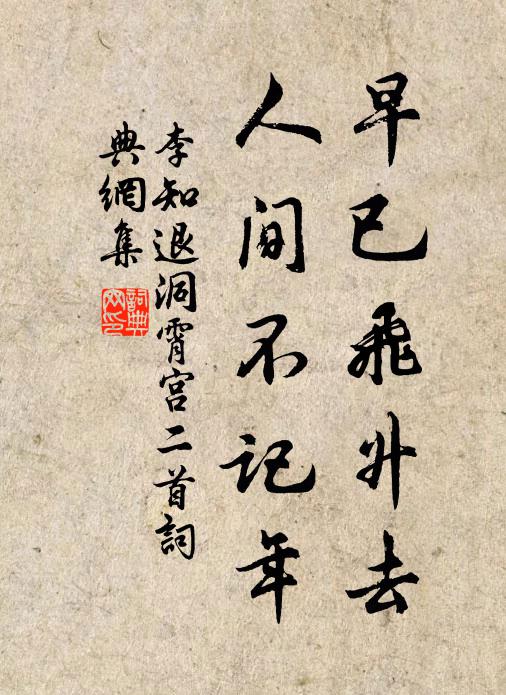 早已飛升去
人間不记年
李知退洞霄宮二首詞
典網集
詞典
网印